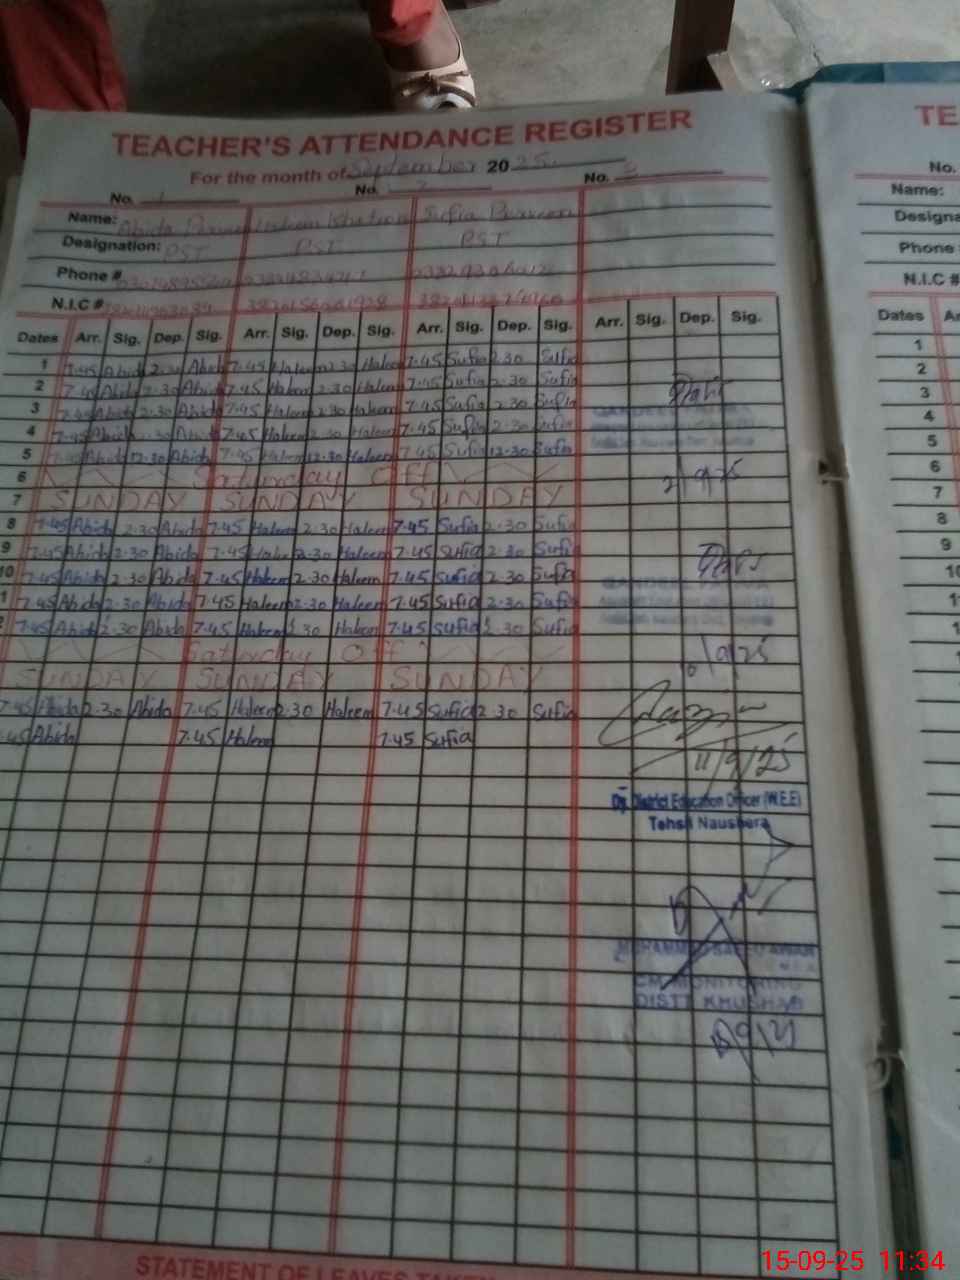 TEACHER'S ATTENDANCE REGISTER
For the month of September 20 25
No. 1 No. 2 No. 3
Name: Abida Sufia
Designation: PST PST PST
Phone #
N.I.C #
Dates Arr. Sig. Dep. Sig. Arr. Sig. Dep. Sig. Arr. Sig. Dep. Sig. Arr. Sig. Dep. Sig.
1 7.45 Abida 2.30 Abida 7.45 Haleem 2.30 Haleem 7.45 Sufia 2.30 Sufia
2 7.45 Abida 2.30 Abida 7.45 Haleem 2.30 Haleem 7.45 Sufia 2.30 Sufia
3 7.45 Abida 2.30 Abida 7.45 Haleem 2.30 Haleem 7.45 Sufia 2.30 Sufia
4 7.45 Abida 2.30 Abida 7.45 Haleem 2.30 Haleem 7.45 Sufia 2.30 Sufia
5 7.45 Abida 12.30 Abida 7.45 Haleem 12.30 Haleem 7.45 Sufia 12.30 Sufia
6 Saturday Off
2/9/25
7 SUNDAY SUNDAY SUNDAY
8 7.45 Abida 2.30 Abida 7.45 Haleem 2.30 Haleem 7.45 Sufia 2.30 Sufia
9 7.45 Abida 2.30 Abida 7.45 Haleem 2.30 Haleem 7.45 Sufia 2.30 Sufia
10 7.45 Abida 2.30 Abida 7.45 Haleem 2.30 Haleem 7.45 Sufia 2.30 Sufia
1 7.45 Abida 2.30 Abida 7.45 Haleem 2.30 Haleem 7.45 Sufia 2.30 Sufia
2 7.45 Abida 2.30 Abida 7.45 Haleem 2.30 Haleem 7.45 Sufia 2.30 Sufia
Saturday Off
10/9/25
SUNDAY SUNDAY SUNDAY
7.45 Abida 2.30 Abida 7.45 Haleem 2.30 Haleem 7.45 Sufia 2.30 Sufia
.45 Abida 7.45 Haleem 7.45 Sufia
11/9/25
Dy. District Education Officer (W.E.E)
Tehsil Naushera
CM MONITORING
DISTT KHUSHAB
STATEMENT OF LEAVES TAKE
TE
No.
Name:
Designa
Phone
N.I.C #
Dates Ar
1
2
3
4
5
6
7
8
9
10
15-09-25 11:34